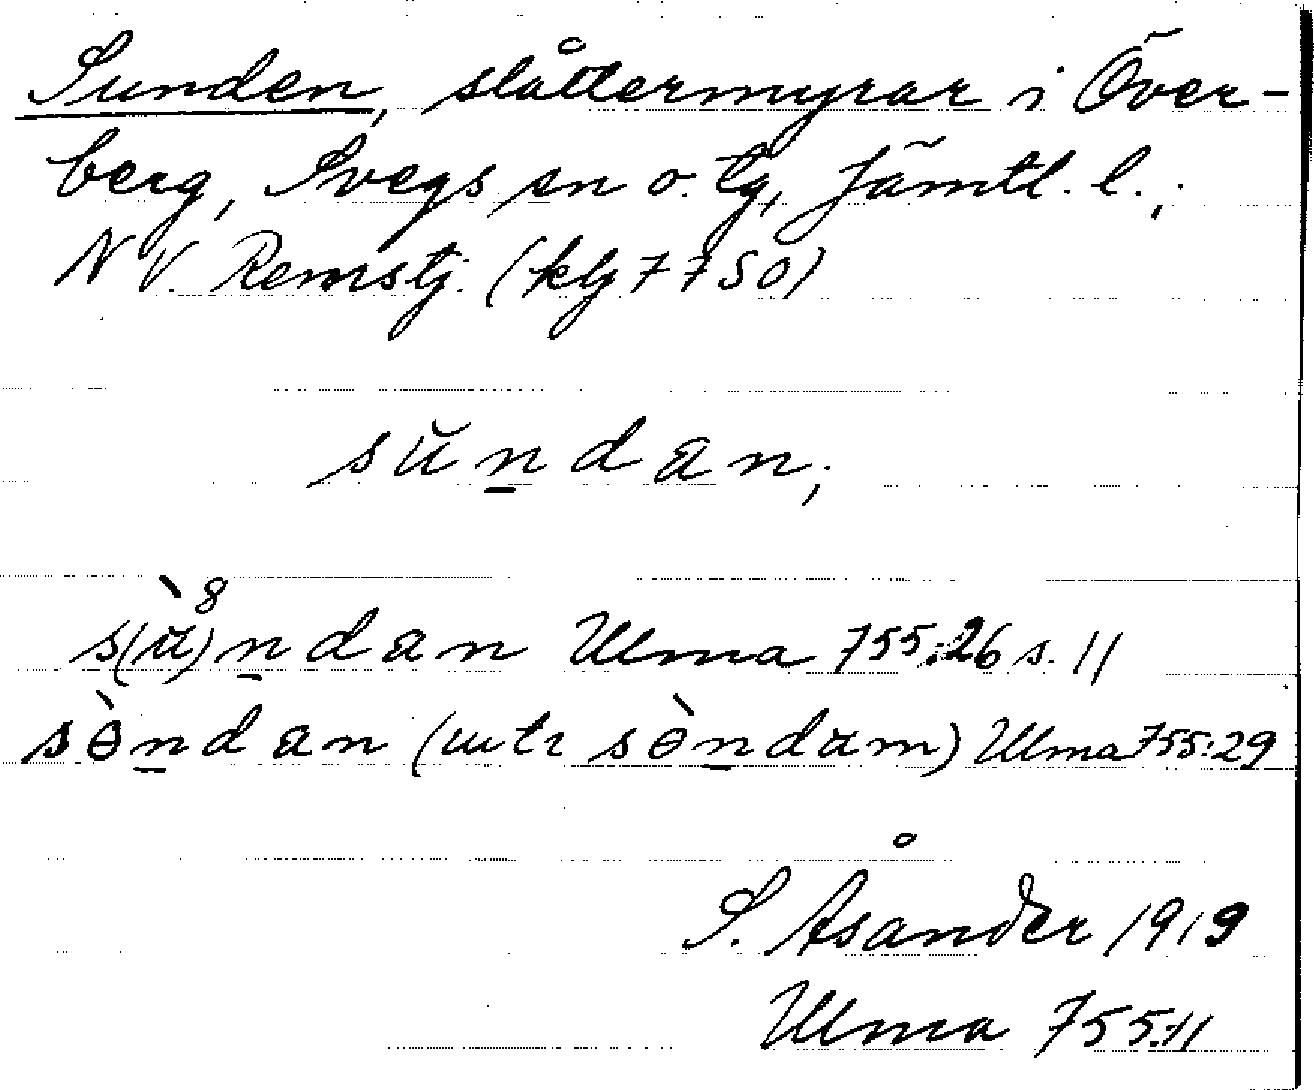 Sunden, slåttermyrar i Över-
berg, Svegs sn o. tg, Jämtl. l.,
N V. Remstj. (klg 7 7 50)
sŭn̲dan,
s(ù)⁸n̲dan Ulma 755:26 s. 11
sə̀n̲dan (utt sə̀n̲dam) Ulma 755:29
S. Åsander 1919
Ulma 755:11